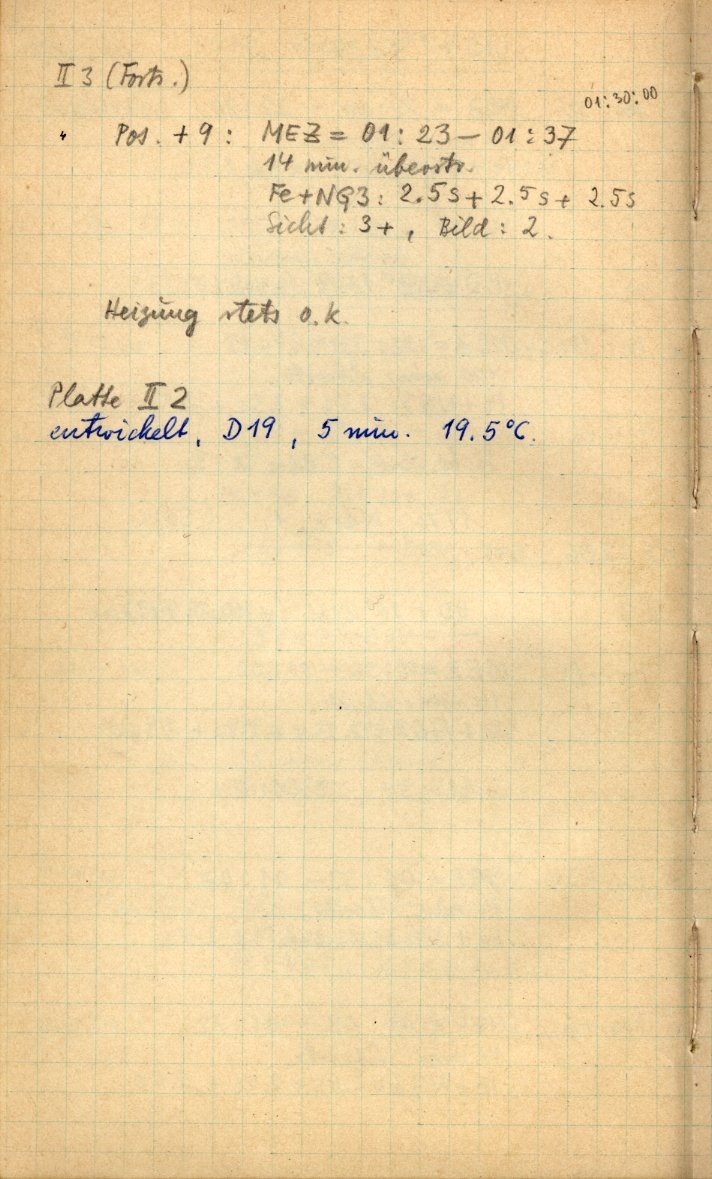 II 3 (Forts.)
01:30:00
" Pos. + 9 : MEZ = 01 : 23 — 01 : 37
14 min. überstr.
Fe+NG3 : 2.5s + 2.5s + 2.5s
Sicht : 3+ , Bild : 2.
Heizung stets o.k.
Platte II 2
entwickelt, D19 , 5 min. 19.5°C.